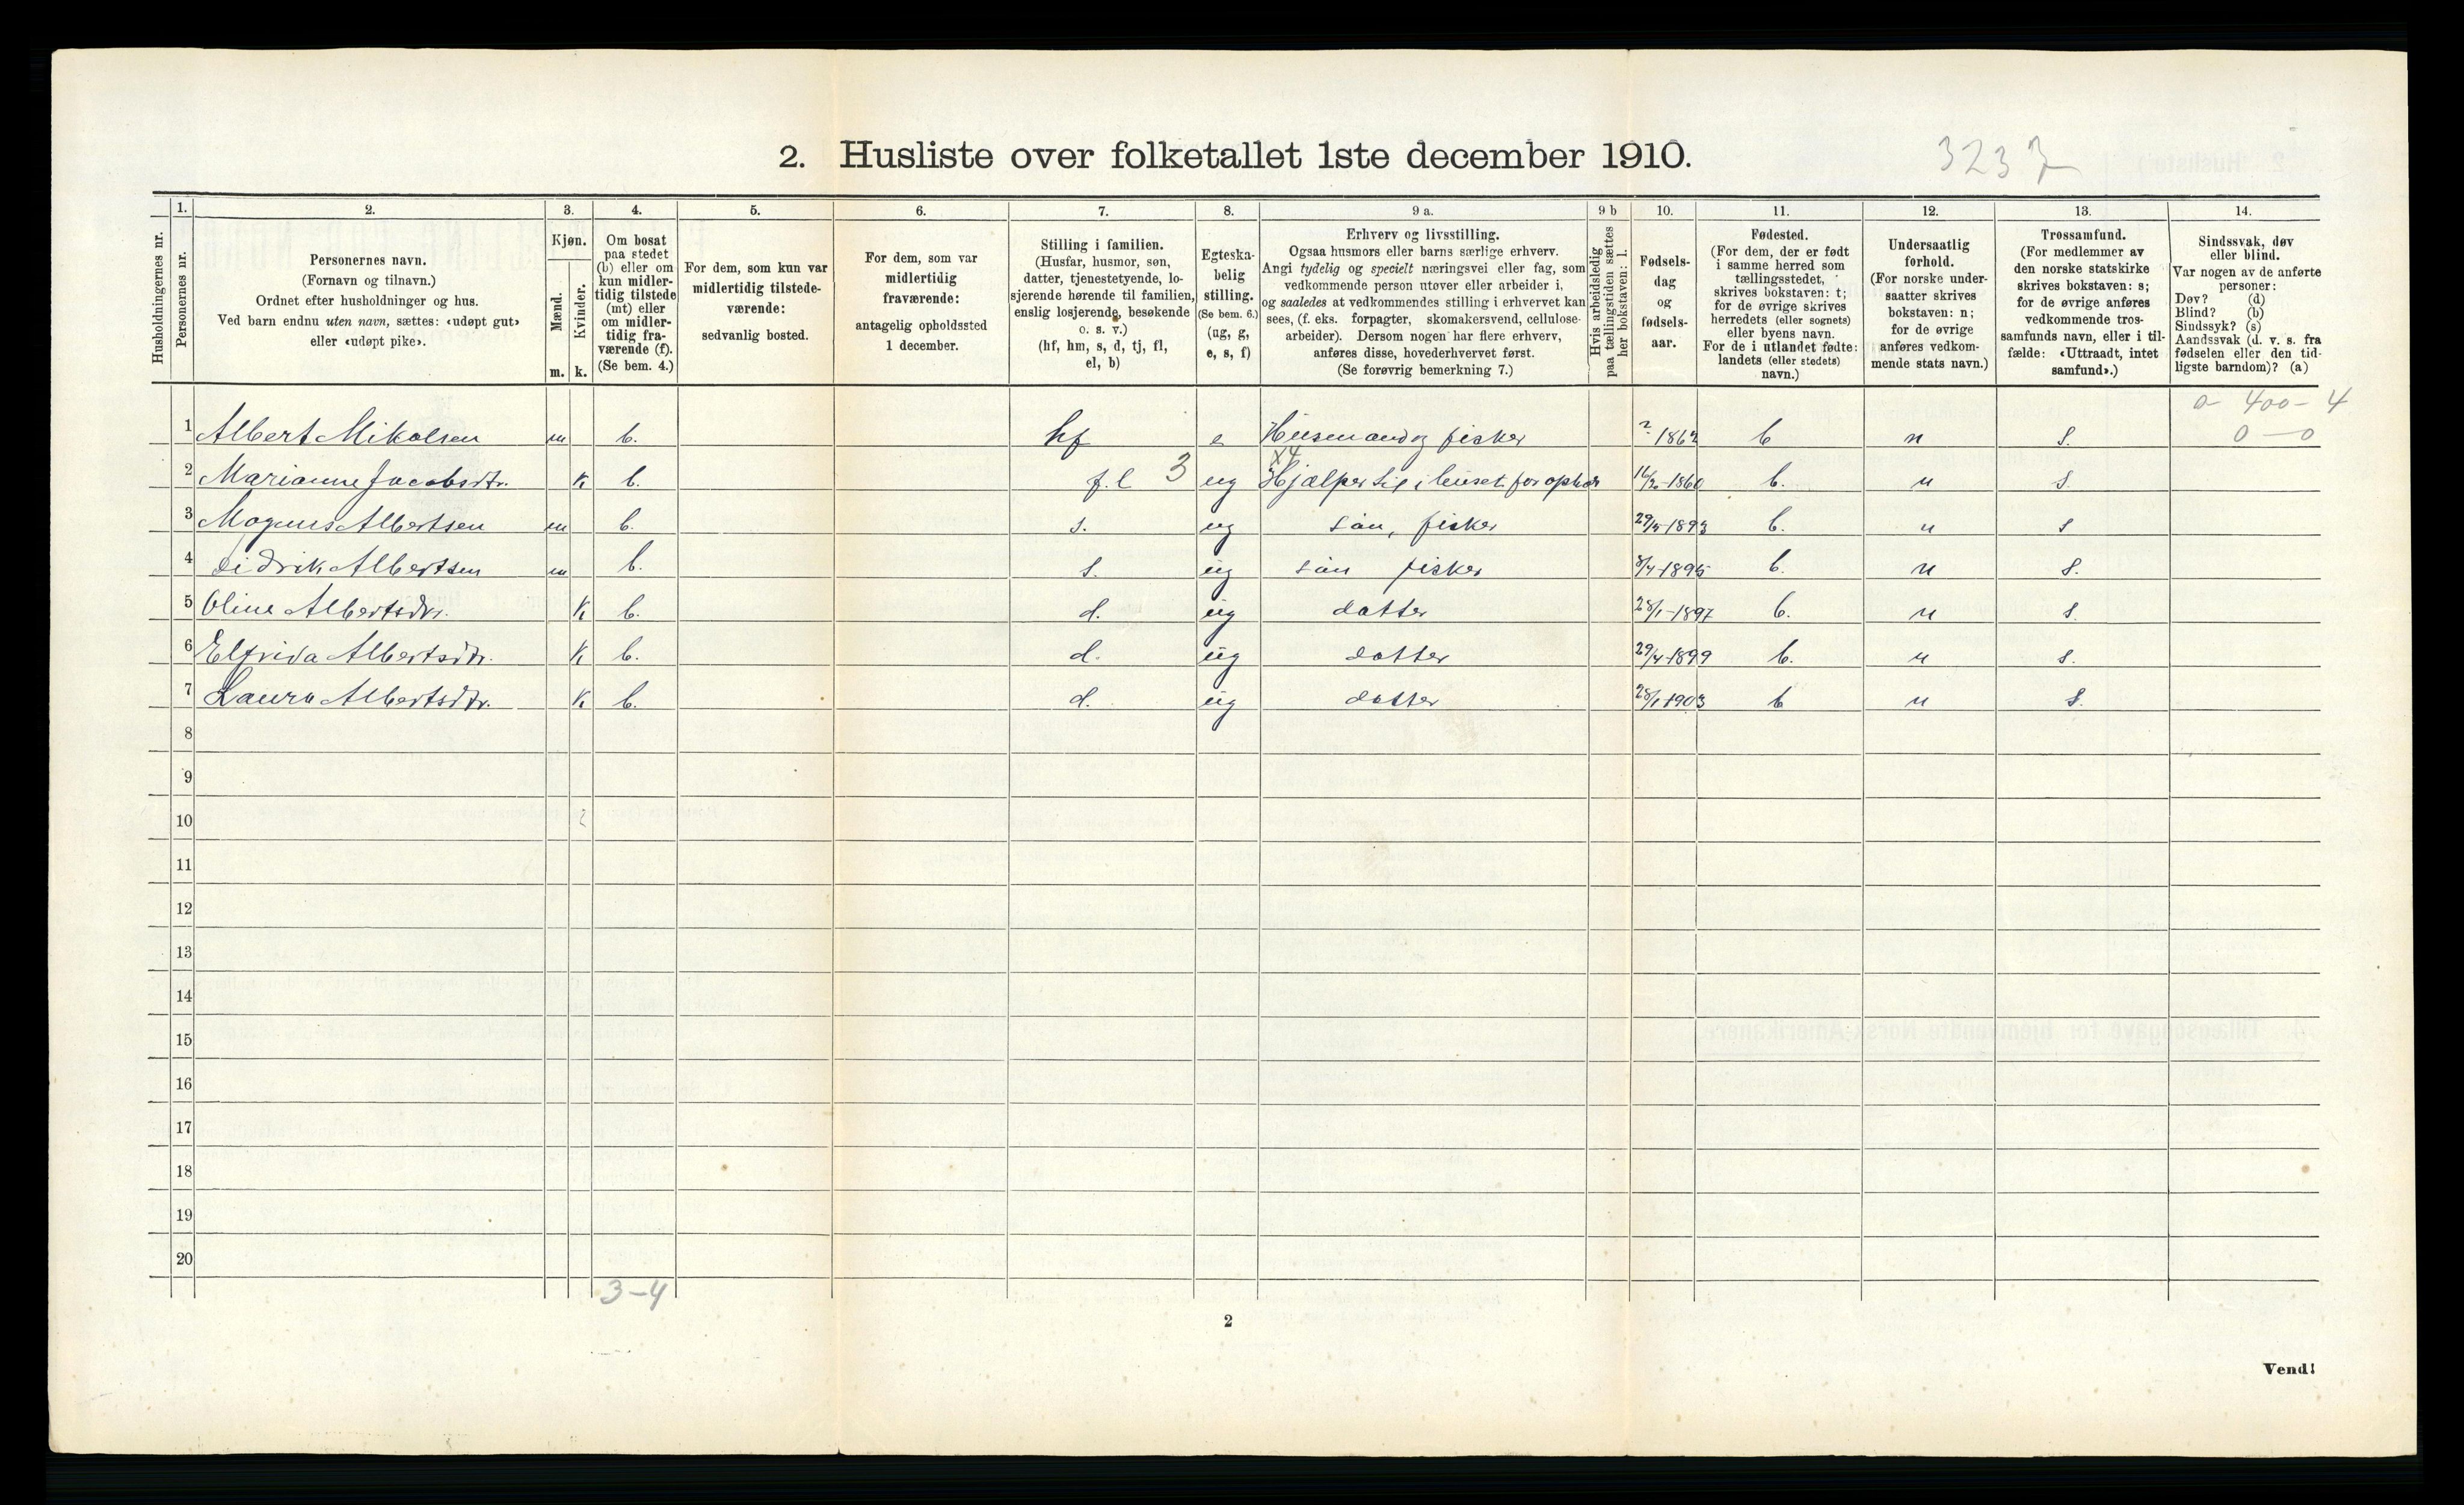 2. Husliste over folketallet 1ste december 1910.
3237
Husholdningernes nr.
1.
Personernes nr.
2.
Personernes navn.
(Fornavn og tilnavn.)
Ordnet efter husholdninger og hus.
Ved barn endnu uten navn, sættes: «udøpt gut»
eller «udøpt pike».
3.
Kjøn.
Mænd.
Kvinder.
m. k.
4.
Om bosat
paa stedet
(b) eller om
kun midler-
tidig tilstede
(mt) eller
om midler-
tidig fra-
værende (f).
(Se bem. 4.)
5.
For dem, som kun var
midlertidig tilstede-
værende:
sedvanlig bosted.
6.
For dem, som var
midlertidig
fraværende:
antagelig opholdssted
1 december.
7.
Stilling i familien.
(Husfar, husmor, søn,
datter, tjenestetyende, lo-
sjerende hørende til familien,
enslig losjerende, besøkende
o. s. v.)
(hf, hm, s, d, tj, fl,
el, b)
8.
Egteska-
belig
stilling.
(Se bem. 6.)
(ug, g,
e, s, f)
9 a.
Erhverv og livsstilling.
Ogsaa husmors eller barns særlige erhverv.
Angi tydelig og specielt næringsvei eller fag, som
vedkommende person utøver eller arbeider i,
og saaledes at vedkommendes stilling i erhvervet kan
sees, (f. eks. forpagter, skomakersvend, cellulose-
arbeider). Dersom nogen har flere erhverv,
anføres disse, hovederhvervet først.
(Se forøvrig bemerkning 7.)
9 b
Hvis arbeidsledig
paa tællingstiden sættes
her bokstaven: l.
10.
Fødsels-
dag
og
fødsels-
aar.
11.
Fødested.
(For dem, der er født
i samme herred som
tællingsstedet,
skrives bokstaven: t;
for de øvrige skrives
herredets (eller sognets)
eller byens navn.
For de i utlandet fødte:
landets (eller stedets)
navn.)
12.
Undersaatlig
forhold.
(For norske under-
saatter skrives
bokstaven: n;
for de øvrige
anføres vedkom-
mende stats navn.)
13.
Trossamfund.
(For medlemmer av
den norske statskirke
skrives bokstaven: s;
for de øvrige anføres
vedkommende tros-
samfunds navn, eller i til-
fælde: «Uttraadt, intet
samfund».)
14.
Sindssvak, døv
eller blind.
Var nogen av de anførte
personer:
Døv? (d)
Blind? (b)
Sindssyk? (s)
Aandssvak (d. v. s. fra
fødselen eller den tid-
ligste barndom)? (a)
0 - 400 - 4
0 - 0
1 Albert Mikalsen m b. hf e Husmand og fisker ? 1862 t n s.
X4
2 Marianne Jacobsdtr. k b. f.l 3 ug Hjælper til i huset for ophold 1860 t. n s.
3 Magnus Albertsen m b. s. ug søn, fisker 1893 t. n s
4 Didrik Albertsen m b. s. ug søn fisker 1895 t. n s.
5 Oline Albertsdtr. k b. d. ug datter 28/1-1897 t. n s.
6 Elfrida Albertsdtr. k b. d. ug datter 29/4-1899 t. n s.
7 Laura Albertsdtr. k b. d. ug datter 28/1 1903 t n s.
8
9
10
11
12
13
14
15
16
17
18
19
20
3-4
2
Vend!